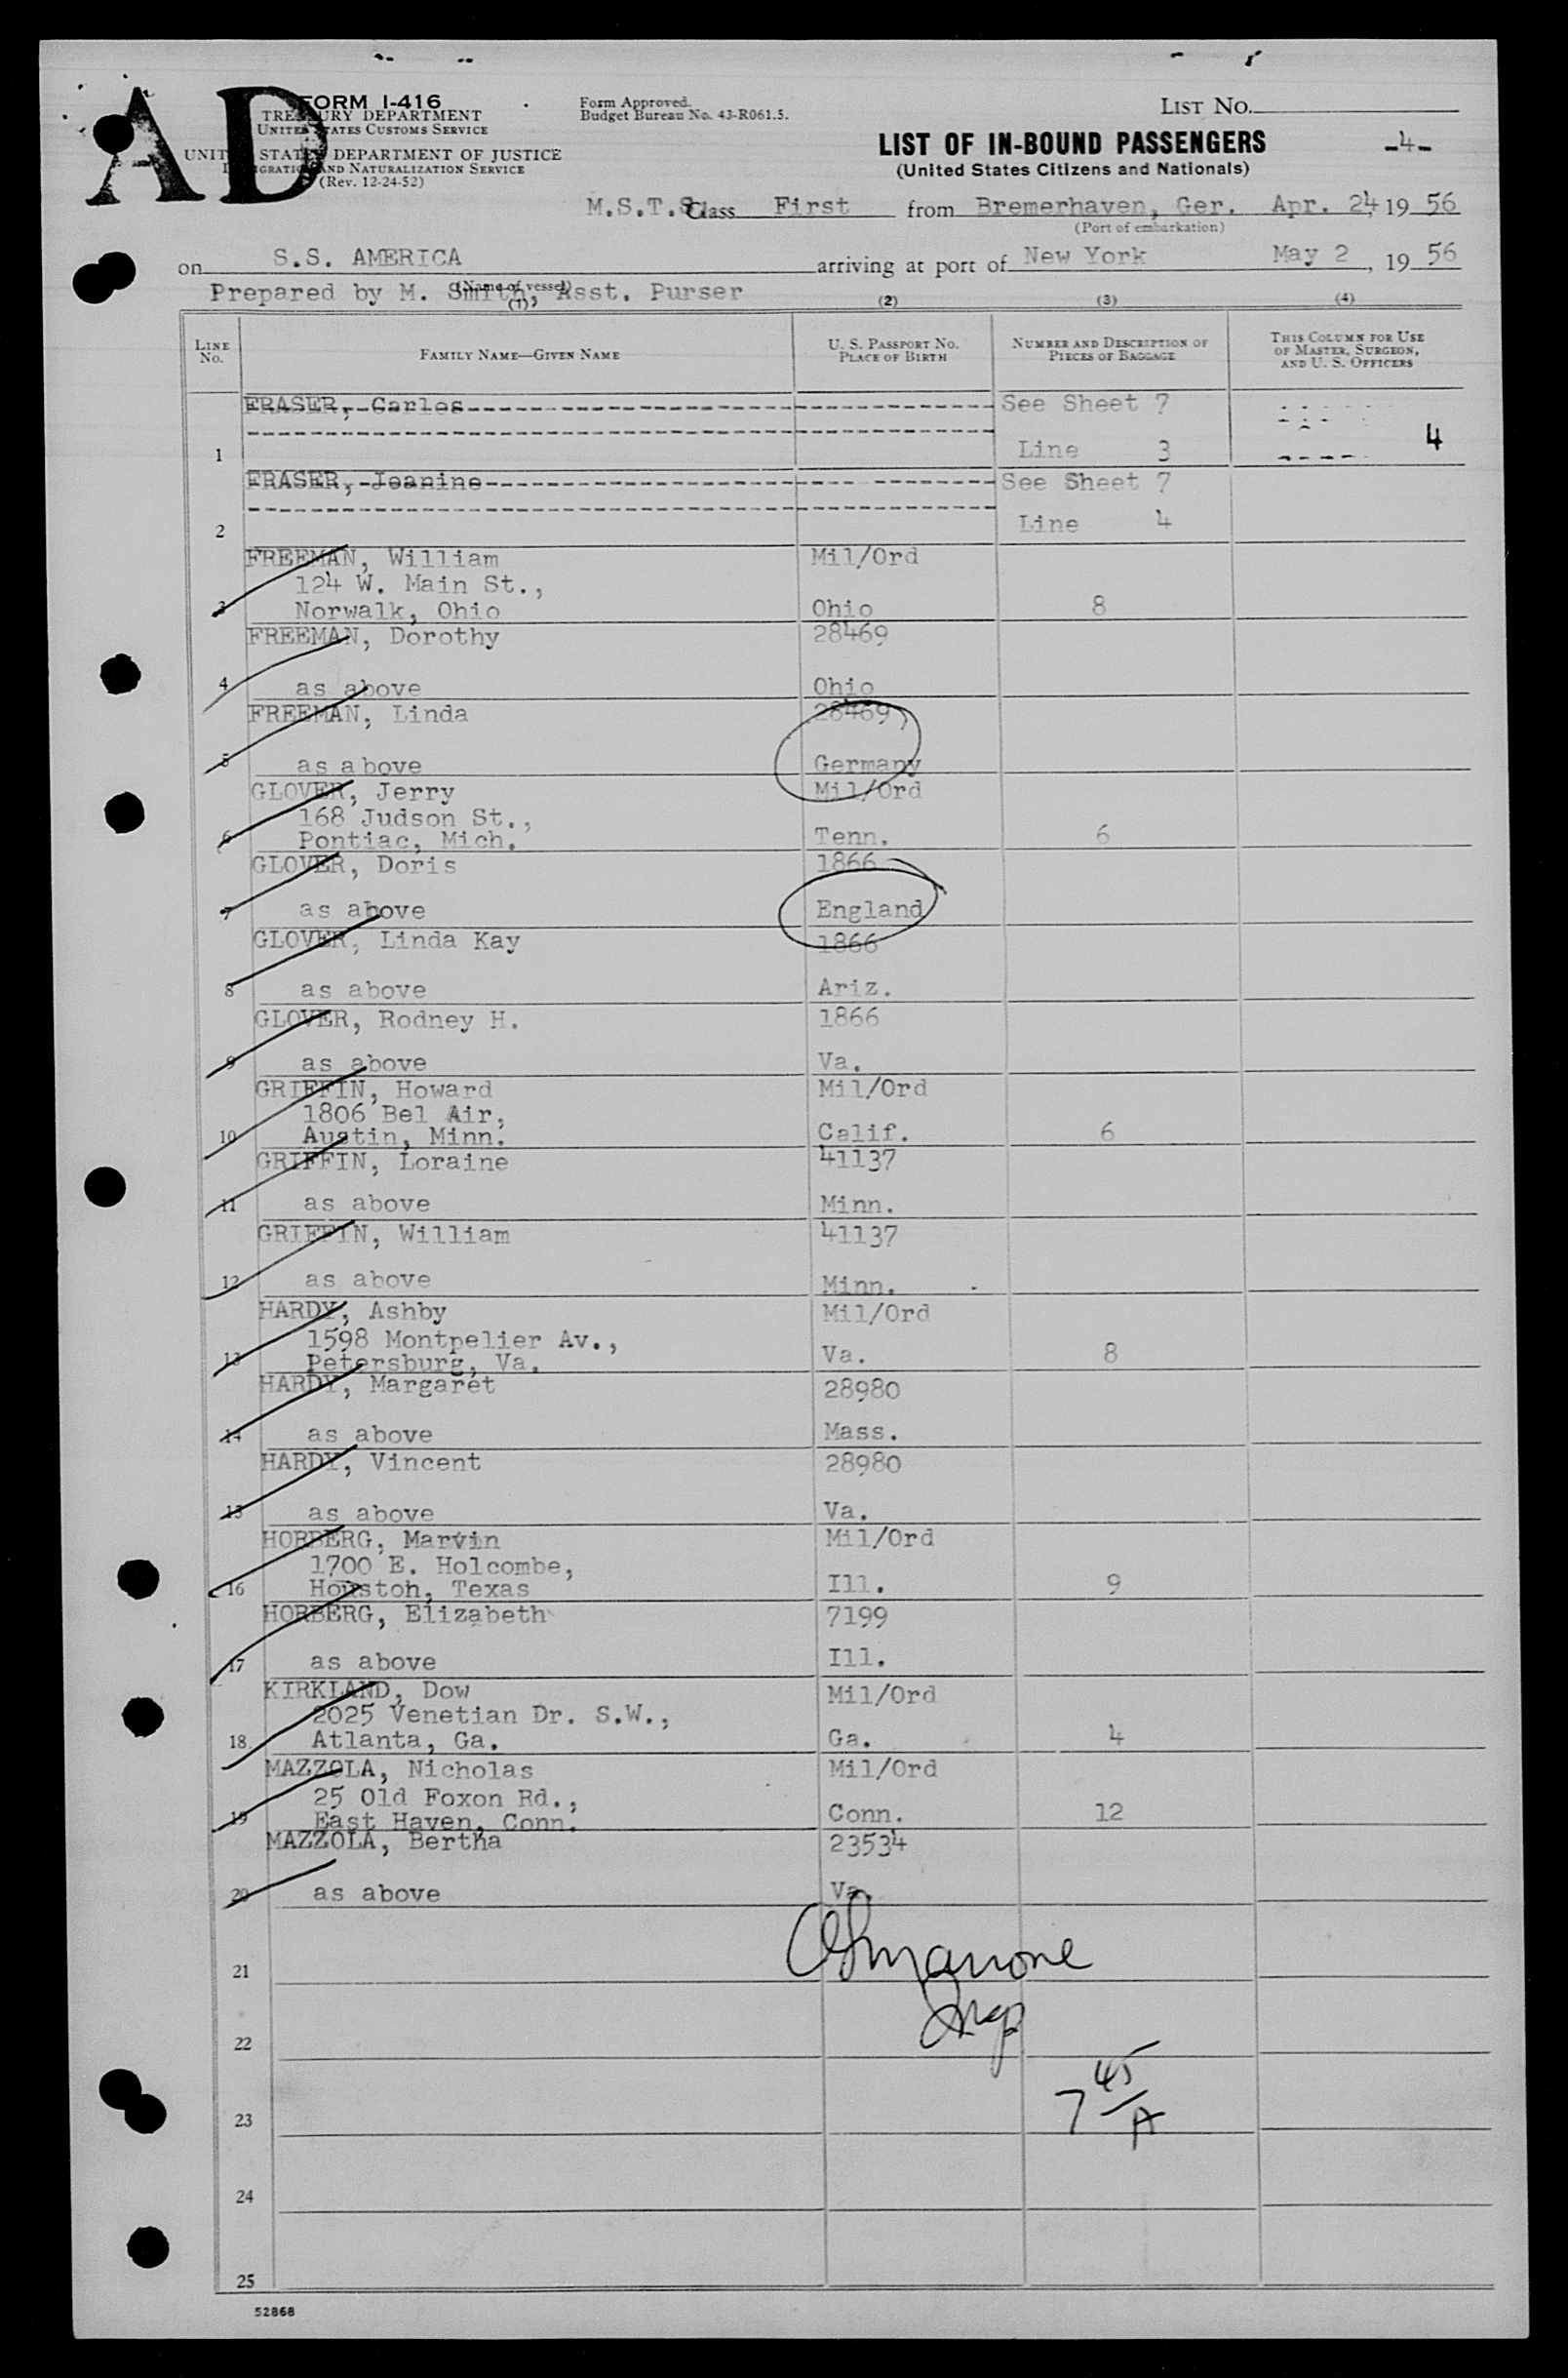 AD
FORM I-416
TREASURY DEPARTMENT
UNITED STATES CUSTOMS SERVICE
UNITED STATES DEPARTMENT OF JUSTICE
IMMIGRATION AND NATURALIZATION SERVICE
(Rev. 12-24-52)
Form Approved.
Budget Bureau No. 43-R061.5.
LIST NO.
-4-
LIST OF IN-BOUND PASSENGERS
(United States Citizens and Nationals)
M.S.T.S. Class First from Bremerhaven, Ger. Apr. 24, 19 56
(Port of embarkation)
on S.S. AMERICA arriving at port of New York May 2, 19 56
(Name of vessel)
Prepared by M. Smith, Asst. Purser
(1) (2) (3) (4)
LINE No. FAMILY NAME—GIVEN NAME U. S. PASSPORT NO. PLACE OF BIRTH NUMBER AND DESCRIPTION OF PIECES OF BAGGAGE THIS COLUMN FOR USE OF MASTER, SURGEON, AND U. S. OFFICERS
FRASER, Carlos See Sheet 7
1 Line 3 4
FRASER, Jeanine See Sheet 7
2 Line 4
FREEMAN, William Mil/Ord
124 W. Main St.,
3 Norwalk, Ohio Ohio 8
FREEMAN, Dorothy 28469
4 as above Ohio
FREEMAN, Linda 28469
5 as above Germany
GLOVER, Jerry Mil/Ord
168 Judson St.,
6 Pontiac, Mich. Tenn. 6
GLOVER, Doris 1866
7 as above England
GLOVER, Linda Kay 1866
8 as above Ariz.
GLOVER, Rodney H. 1866
9 as above Va.
GRIFFIN, Howard Mil/Ord
1806 Bel Air,
10 Austin, Minn. Calif. 6
GRIFFIN, Loraine 41137
11 as above Minn.
GRIFFIN, William 41137
12 as above Minn.
HARDY, Ashby Mil/Ord
1598 Montpelier Av.,
13 Petersburg, Va. Va. 8
HARDY, Margaret 28980
14 as above Mass.
HARDY, Vincent 28980
15 as above Va.
HORBERG, Marvin Mil/Ord
1700 E. Holcombe,
16 Houston, Texas Ill. 9
HORBERG, Elizabeth 7199
17 as above Ill.
KIRKLAND, Dow Mil/Ord
2025 Venetian Dr. S.W.,
18 Atlanta, Ga. Ga. 4
MAZZOLA, Nicholas Mil/Ord
25 Old Foxon Rd.,
19 East Haven, Conn. Conn. 12
MAZZOLA, Bertha 23534
20 as above Va.
21
Insp
22
7 45/A
23
24
25
52868